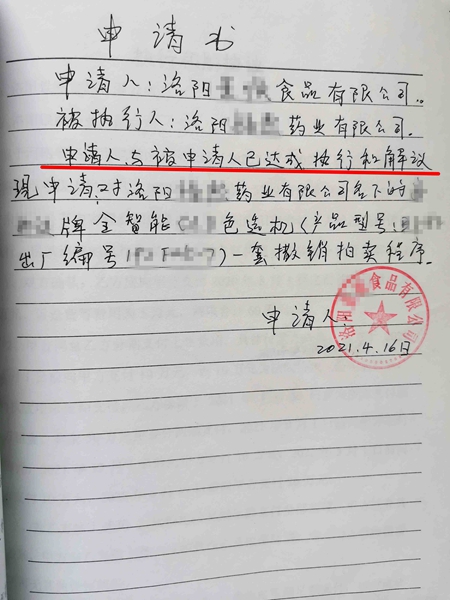 申请书
申请人：洛阳食品有限公司．
被执行人：洛阳药业有限公司．
申请人与被申请人已达成执行和解议
现申请对洛阳药业有限公司名下的
牌全智能色选机（产品型号：
出厂编号）一套撤销拍卖程序．
申请人：
洛阳食品有限公司
2021.4.16日